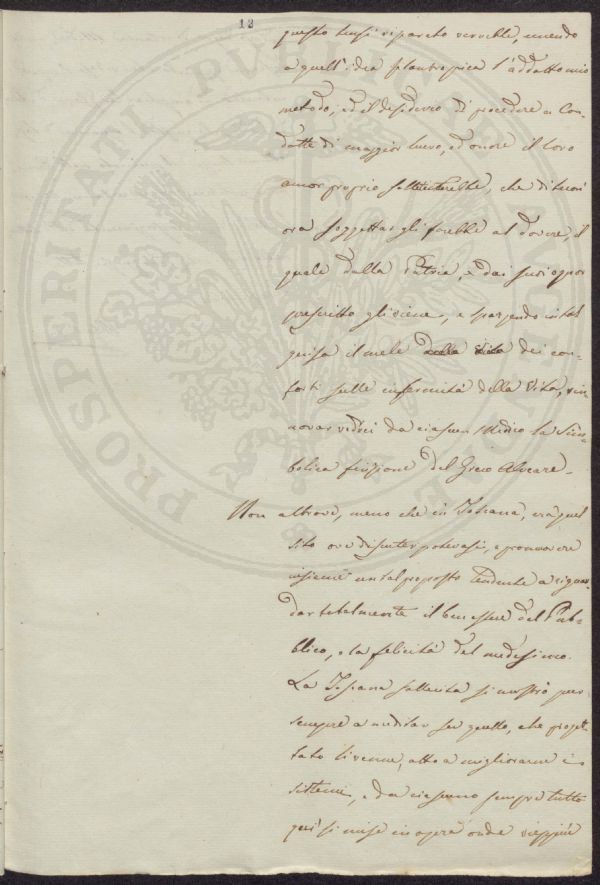 18
questo tensi riparato verrebbe, unendo
a quell'idea filantropica l'addatto mio
metodo, ed il desiderio di procedere a Con-
dotte di maggior lucro, ed onore il loro
amor proprio solleticherebbe, che di lussi
ora soggettar gli farebbe al dovere, il
quale dalla Patria, e dai suoi
prescritto gli viene, e spargendo in tal
guisa il mele dei con-
forti sulle infermità della Vita, rin
novar vedrei da ciascun Medico la Sim-
bolica finzione del Greco Alveare.
Non altrove, meno che in Toscana, era quel
sito ove discuter potevasi, e promuovere
insieme un tal proposto tendente a riguar-
dar totalmente il ben essere del Pub-
blico, e la felicità del medesimo.
La Toscana sollecita si mostrò pur
sempre a meditar su quello, che proget-
tato li venne, atto a migliorarne i
sistemi, e da ciascuno sempre tutto
quì si mise in opera onde vieppiù
PROSPERITATI PUBLICAE AUGENDAE